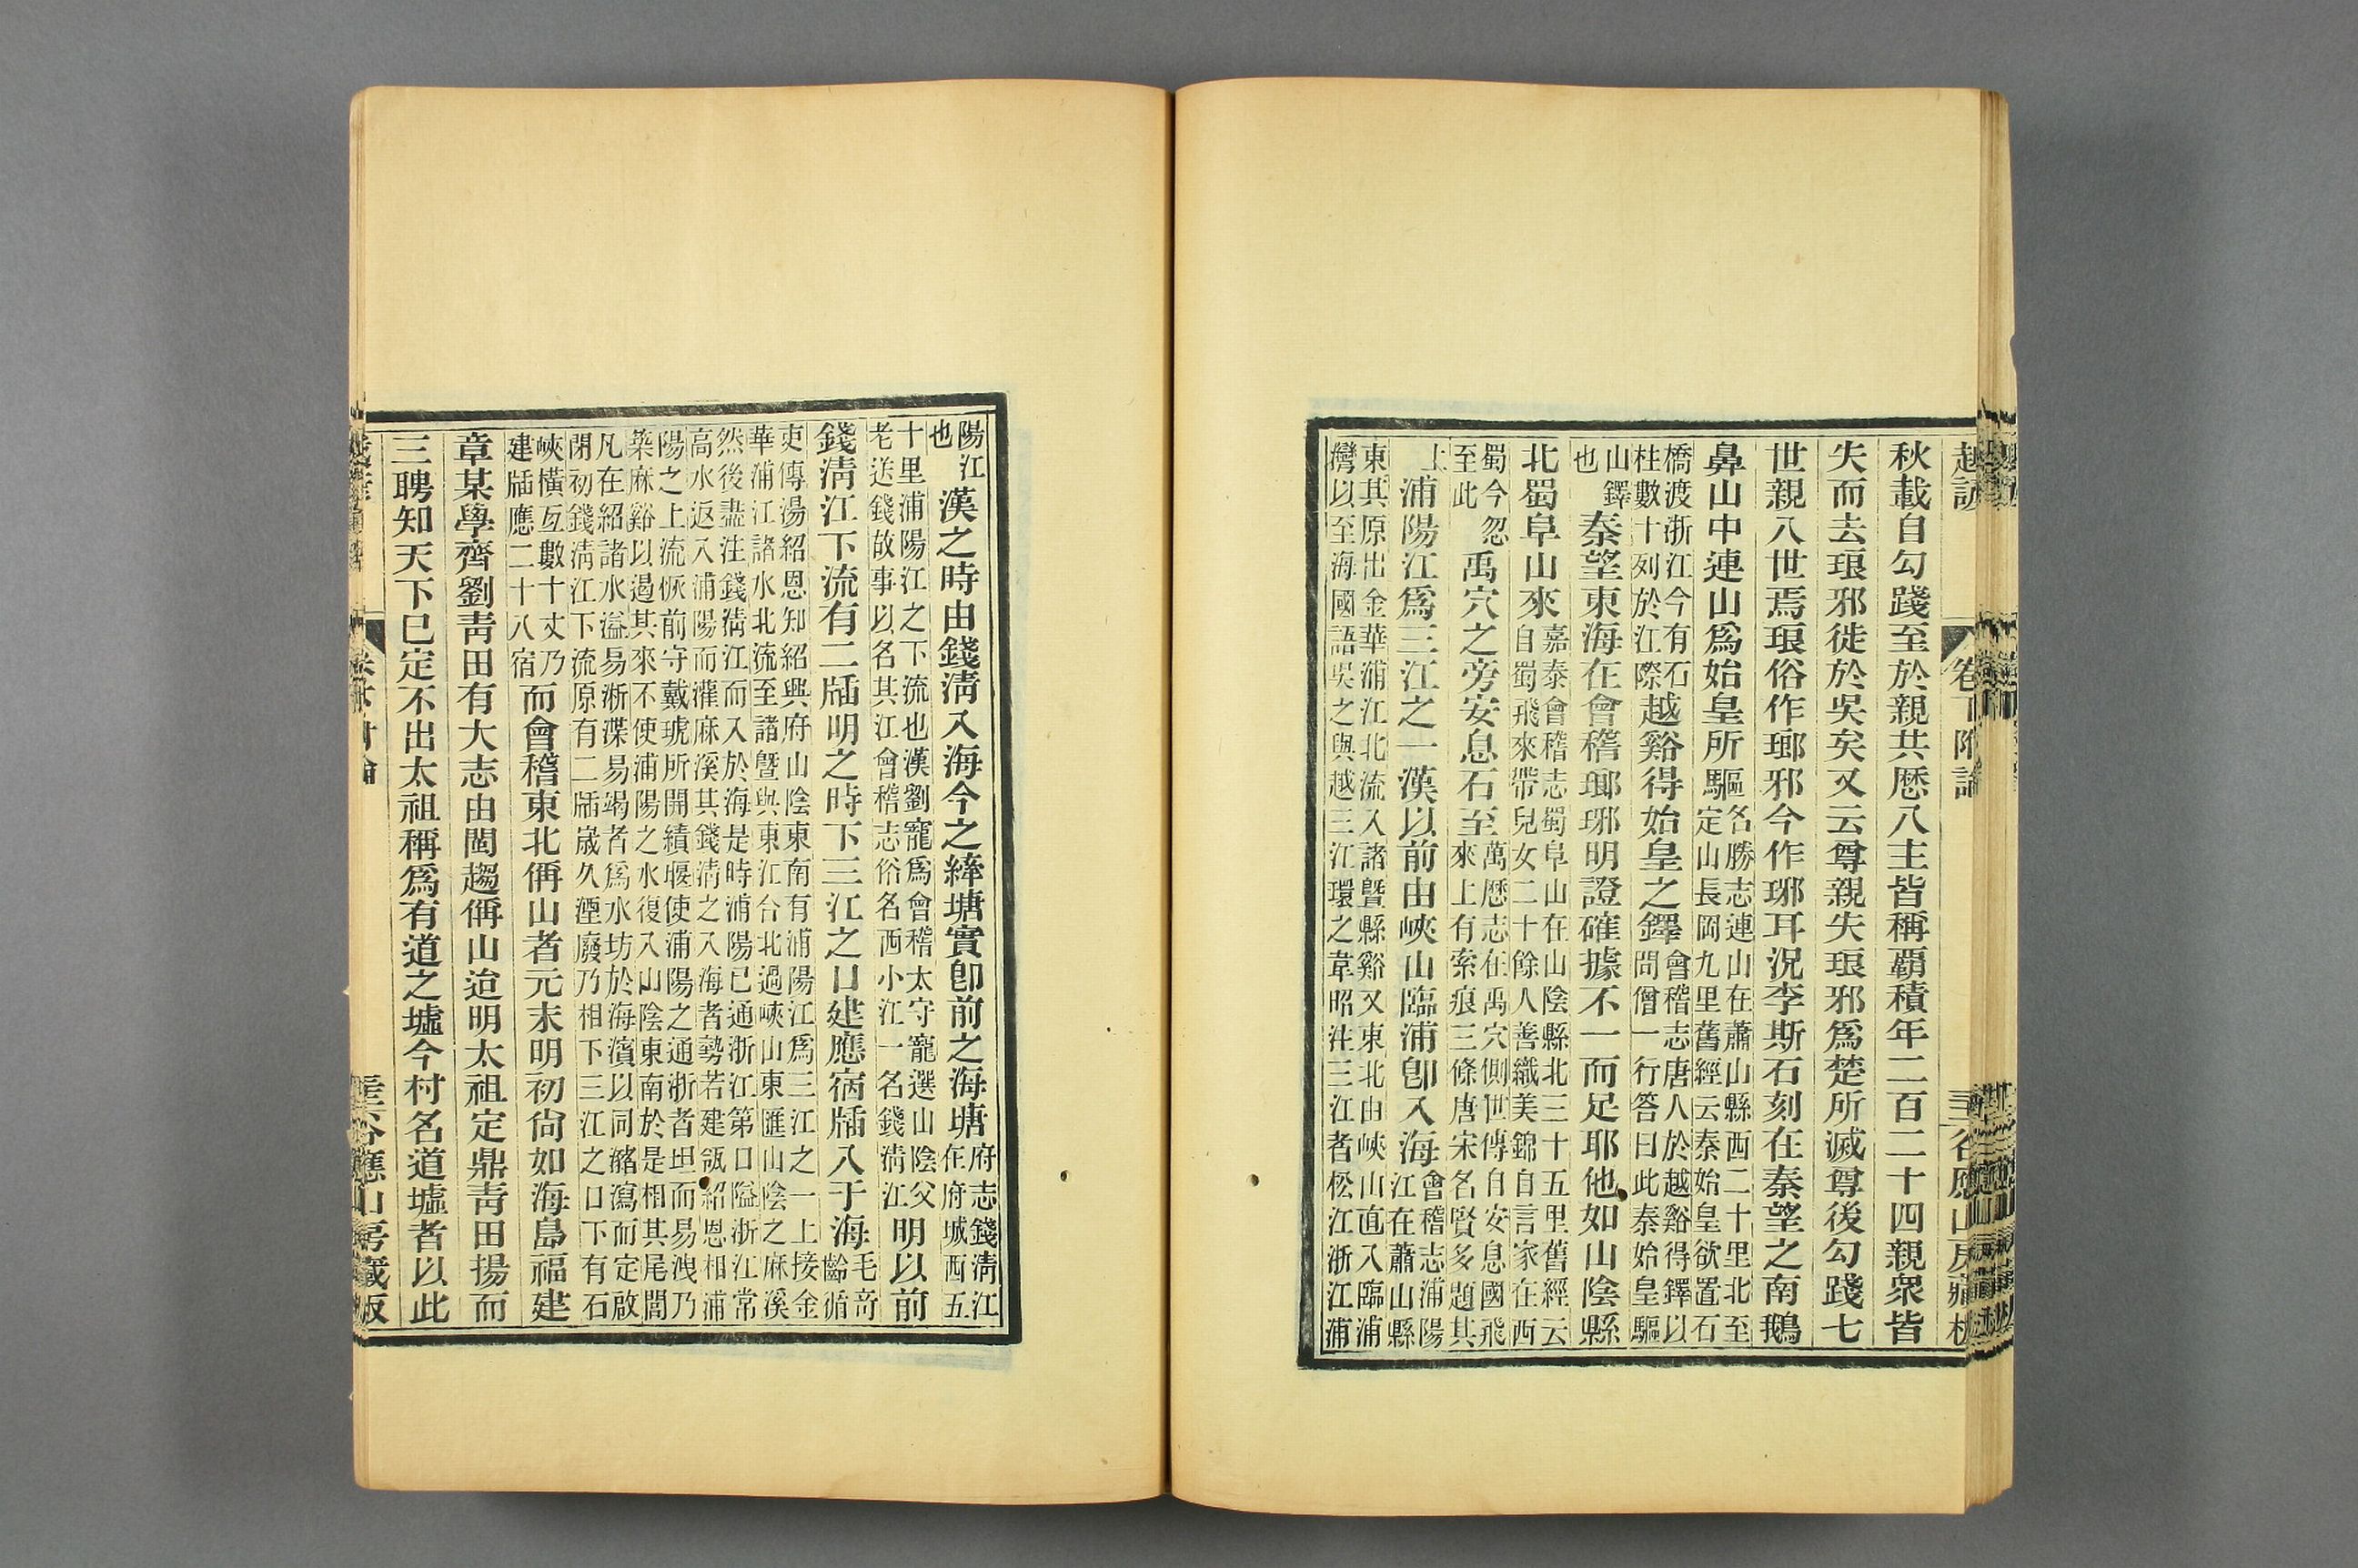 越諺
卷下附論
三
谷應山房藏板
秋載自勾踐至於親共厯八主皆稱覇積年二百二十四親衆皆
失而去琅邪徙於吳矣又云尊親失琅邪爲楚所滅尊後勾踐七
世親八世焉琅俗作瑯邪今作琊耳況李斯石刻在秦望之南鵝
鼻山中連山爲始皇所驅名勝志連山在蕭山縣西二十里北至
定山長岡九里舊經云秦始皇欲置石
橋渡浙江今有石
柱數十列於江際越谿得始皇之鐸會稽志唐人於越谿得鐸以
問僧一行答曰此秦始皇驅
山鐸
也秦望東海在會稽瑯琊明證確據不一而足耶他如山陰縣
北蜀阜山來嘉泰會稽志蜀阜山在山陰縣北三十五里舊經云
自蜀飛來帶兒女二十餘人善織美錦自言家在西
蜀今忽
至此禹穴之旁安息石至萬厯志在禹穴側世傳自安息國飛
來上有索痕三條唐宋名賢多題其
上浦陽江爲三江之一漢以前由峽山臨浦卽入海會稽志浦陽
江在蕭山縣
東其原出金華浦江北流入諸暨縣谿又東北由峽山直入臨浦
灣以至海國語吳之與越三江環之韋昭注三江者松江浙江浦
陽江
也漢之時由錢淸入海今之䋲塘實卽前之海塘府志錢淸江
在府城西五
十里浦陽江之下流也漢劉寵爲會稽太守寵選山陰父
老送錢故事以名其江會稽志俗名西小江一名錢淸江明以前
錢淸江下流有二牐明之時下三江之口建應宿牐入于海毛奇
齡循
吏傳湯紹恩知紹興府山陰東南有浦陽江爲三江之一上接金
華浦江諸水北流至諸暨與東江合北過峽山東匯山陰之麻溪
然後盡注錢淸江而入於海是時浦陽已通浙江第口隘浙江常
高水返入浦陽而灌麻溪其錢淸之入海者勢若建瓴紹恩相浦
陽之上流恢前守戴琥所開績堰使浦陽之通浙者坦而易洩乃
築麻谿以遏其來不使浦陽之水復入山陰東南於是相其尾閭
凡在紹諸水溢易淅渫易竭者爲水坊於海濱以同瀦瀉而定啟
閉初錢淸江下流原有二牐嵗久湮廢乃相下三江之口下有石
峽橫亙數十丈乃
建牐應二十八宿而會稽東北偁山者元末明初尙如海島福建
章某學齊劉靑田有大志由閩趨偁山迨明太祖定鼎靑田揚而
三聘知天下已定不出太祖稱爲有道之墟今村名道墟者以此